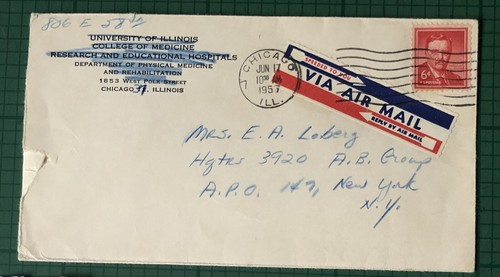 806 E 58th
UNIVERSITY OF ILLINOIS
COLLEGE OF MEDICINE
RESEARCH AND EDUCATIONAL HOSPITALS
DEPARTMENT OF PHYSICAL MEDICINE
AND REHABILITATION
1853 WEST POLK STREET
CHICAGO 37, ILLINOIS
CHICAGO
JUN 17
10 30 AM
1957
ILL.
SPEEDED TO YOU
VIA AIR MAIL
REPLY BY AIR MAIL
6¢
Mrs. E. A. Loberg
Hqtrs 3920 A.B. Group
A.P.O. 147, New York
N.Y.